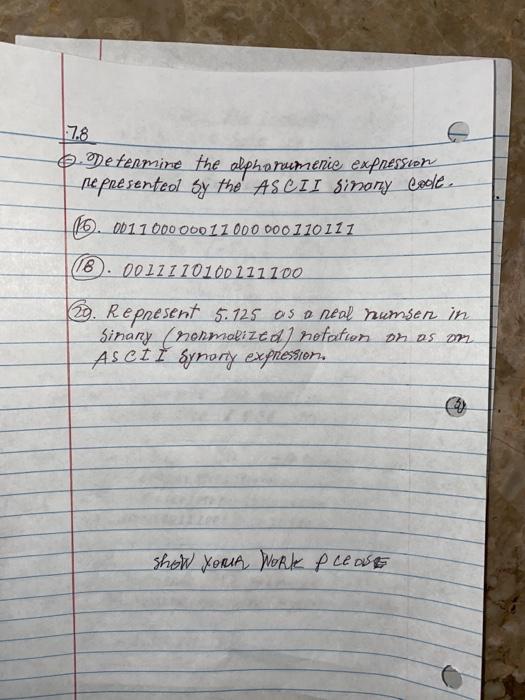 7.8
⊖. Determine the alphanumeric expression
represented by the ASCII binary code.
16. 001100000011000000110111
18. 0011110100111100
29. Represent 5.125 as a real number in
binary (normalized) notation or as an
ASCII bynary expression.
Show your work please